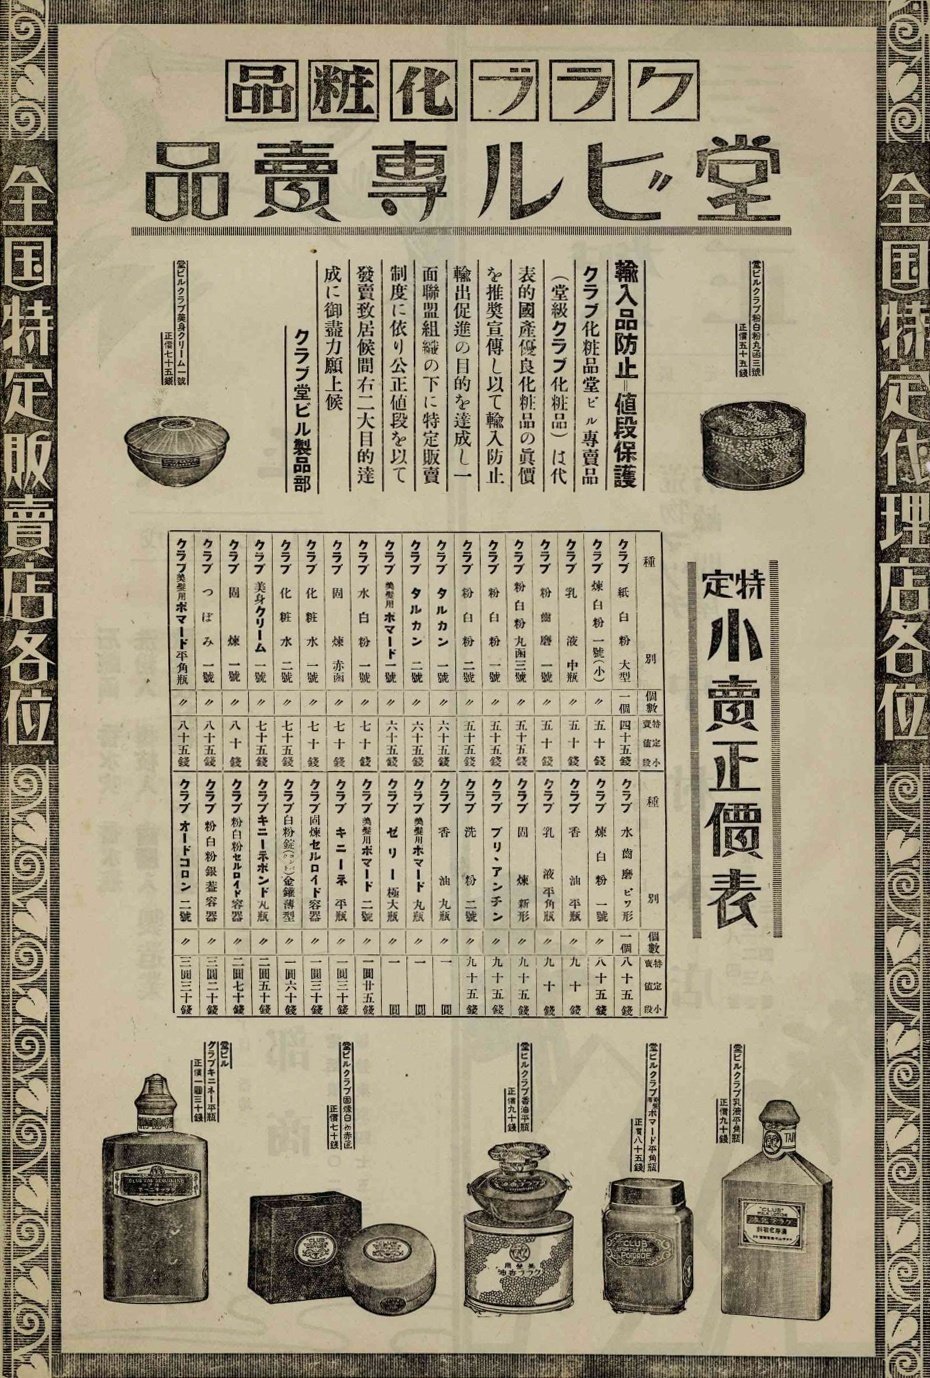 クラブ化粧品
堂ビル專賣品
全国特定代理店各位
全国特定販賣店各位
堂ビルクラブ粉白粉丸函三號
正價五十五錢
輸入品防止＝値段保護
クラブ化粧品堂ビル專賣品
（堂級クラブ化粧品）は代
表的國産優良化粧品の眞價
を推奬宣傳し以て輸入防止
輸出促進の目的を達成し一
面聯盟組織の下に特定販賣
制度に依り公正値段を以て
發賣致居候間右二大目的達
成に御盡力願上候
クラブ堂ビル製品部
堂ビルクラブ美身クリーム一號
正價七十五錢
特定
小賣正價表
種別 個數 特定小賣値段
クラブ紙白粉大型 一個 四十五錢
クラブ煉白粉一號(小) 〃 五十錢
クラブ乳液中瓶 〃 五十錢
クラブ粉齒磨一號 〃 五十錢
クラブ粉白粉丸函三號 〃 五十五錢
クラブ粉白粉一號 〃 五十五錢
クラブ粉白粉二號 〃 五十五錢
クラブタルカン一號 〃 六十五錢
クラブタルカン二號 〃 六十五錢
クラブ美髮用ポマード一號 〃 六十五錢
クラブ水白粉一號 〃 七十錢
クラブ固煉赤函 〃 七十錢
クラブ化粧水一號 〃 七十錢
クラブ化粧水二號 〃 七十五錢
クラブ美身クリーム一號 〃 七十五錢
クラブ固煉一號 〃 八十錢
クラブつぼみ一號 〃 八十五錢
クラブ美髮用ポマード平角瓶 〃 八十五錢
種別 個數 特定小賣値段
クラブ水齒磨ビワ形 一個 八十五錢
クラブ煉白粉一號 〃 八十五錢
クラブ香油平瓶 〃 九十錢
クラブ乳液平角瓶 〃 九十錢
クラブ固煉新形 〃 九十五錢
クラブブリ・アンチン 〃 九十五錢
クラブ洗粉二號 〃 九十五錢
クラブ香油丸瓶 〃 一圓
クラブ美髮用ポマード丸瓶 〃 一圓
クラブゼリー極大瓶 〃 一圓
クラブ美髮用ポマード二號 〃 一圓廿五錢
クラブキニーネ平瓶 〃 一圓三十錢
クラブ固煉セルロイド容器 〃 一圓三十錢
クラブ白粉錠金鎖薄型 〃 一圓六十錢
クラブキニーネポンド丸瓶 〃 二圓五十錢
クラブ粉白粉セルロイド容器 〃 二圓七十錢
クラブ粉白粉銀蓋容器 〃 三圓二十錢
クラブオードコロン二號 〃 三圓三十錢
堂ビルクラブ乳液平角瓶
正價九十錢
堂ビルクラブ美髮用ポマード平角瓶
正價八十五錢
堂ビルクラブ香油平瓶
正價九十錢
堂ビルクラブ固煉白粉赤函
正價七十錢
堂ビル
クラブキニネー平瓶
正價一圓三十錢
CLUB
FOR THE HAIR
POMADE
クラブ香油
CLUB